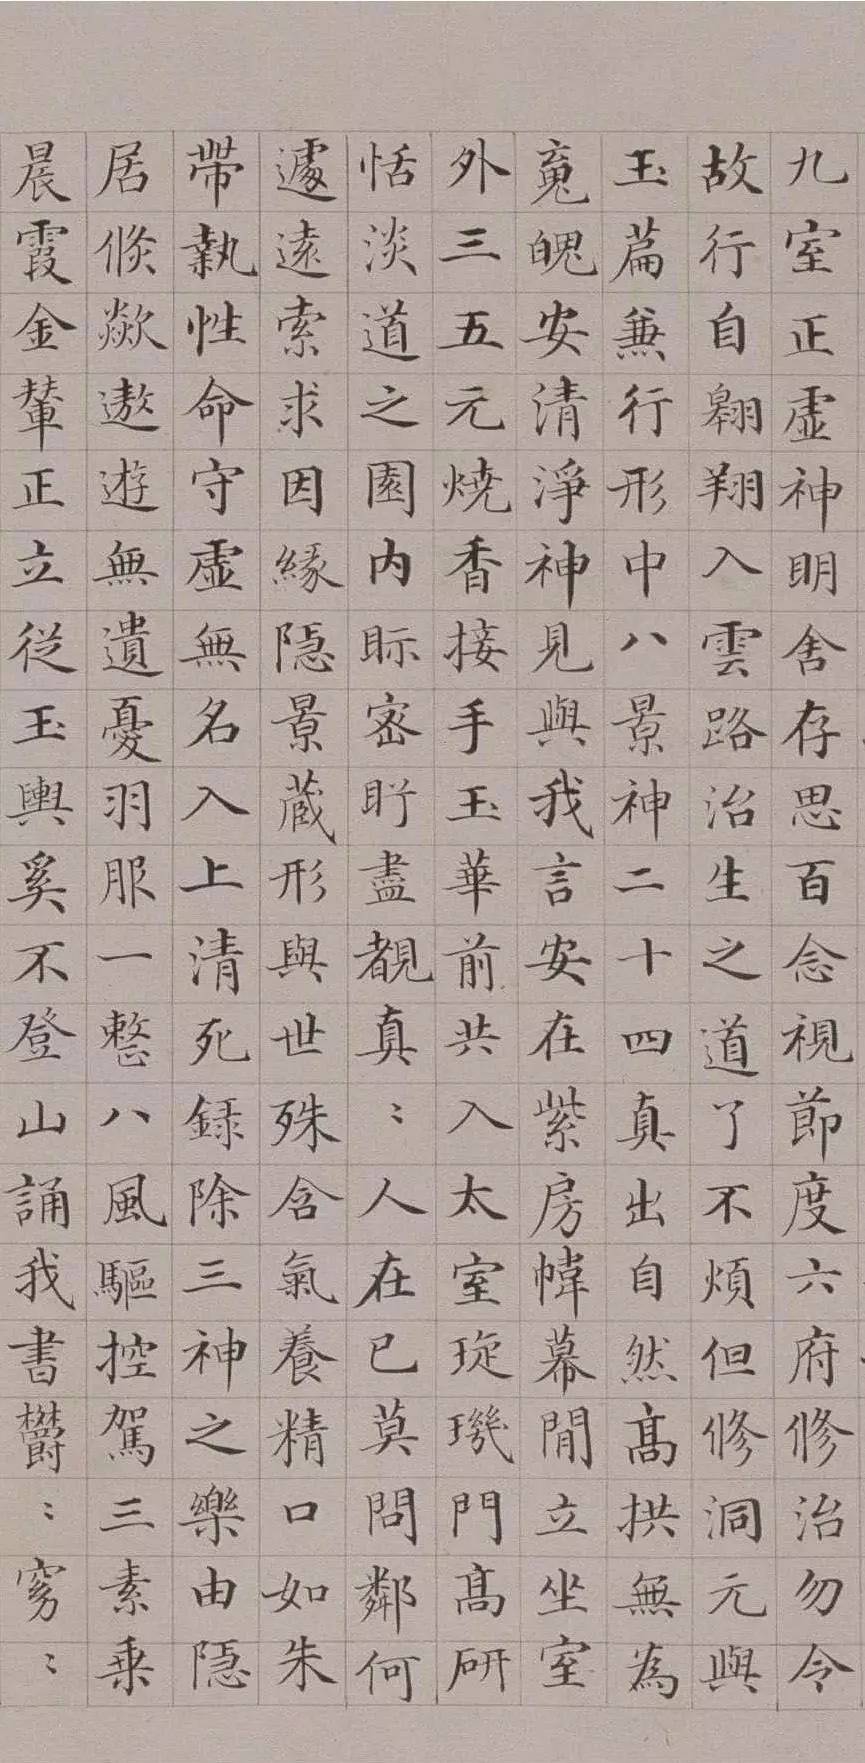 九室正虛神明舍存思百念視節度六府修治勿令
故行自翱翔入雲路治生之道了不煩但修洞元與
玉篇兼行形中八景神二十四真出自然高拱無為
魂魄安清淨神見與我言安在紫房幃幕閒立坐室
外三五元燒香接手玉華前共入太室琁璣門高研
恬淡道之園內眎密盱盡覩真〻人在已莫問鄰何
遽遠索求因緣隱景藏形與世殊含氣養精口如朱
帶執性命守虛無名入上清死録除三神之樂由隱
居倏歘遨遊無遺憂羽服一整八風驅控駕三素乗
晨霞金輦正立從玉輿奚不登山誦我書欝〻窈〻